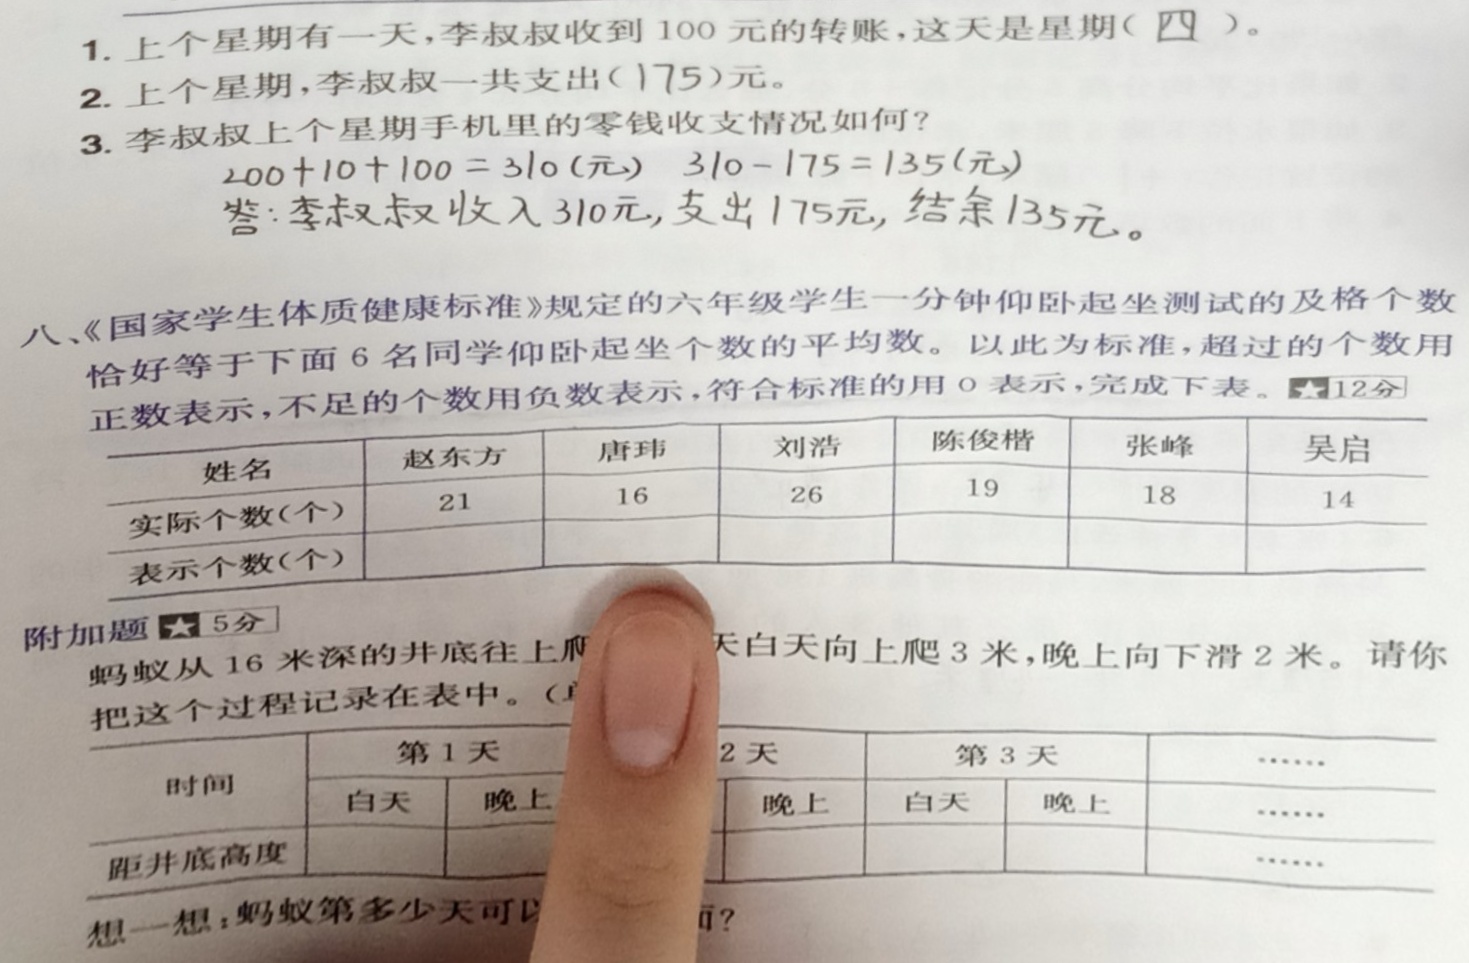 1. 上个星期有一天,李叔叔收到100元的转账,这天是星期(四)。
2. 上个星期,李叔叔一共支出(175)元。
3. 李叔叔上个星期手机里的零钱收支情况如何?
200+10+100=310(元) 310-175=135(元)
答:李叔叔收入310元,支出175元,结余135元。
八、《国家学生体质健康标准》规定的六年级学生一分钟仰卧起坐测试的及格个数
恰好等于下面6名同学仰卧起坐个数的平均数。以此为标准,超过的个数用
正数表示,不足的个数用负数表示,符合标准的用0表示,完成下表。★12分
姓名 赵东方 唐玮 刘浩 陈俊楷 张峰 吴启
实际个数(个) 21 16 26 19 18 14
表示个数(个)
附加题 ★5分
蚂蚁从16米深的井底往上爬 天白天向上爬3米,晚上向下滑2米。请你
把这个过程记录在表中。(
时间 第1天 2天 第3天 ……
白天 晚上 晚上 白天 晚上 ……
距井底高度 ……
想一想:蚂蚁第多少天可以 ?